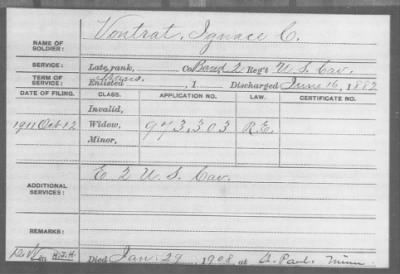 NAME OF SOLDIER: Vontrat, Ignace C.
SERVICE: Late rank, Co Band 2 Reg't U.S. Cav.
TERM OF SERVICE: Enlisted , 1 Discharged June 16, 1882
DATE OF FILING. CLASS. APPLICATION NO. LAW. CERTIFICATE NO.
Invalid,
1911 Oct-12 Widow, 973,303 R.E.
Minor,
ADDITIONAL SERVICES: E 2 U.S. Cav.
REMARKS:
Died Jan. 29, 1908, at St. Paul. Minn